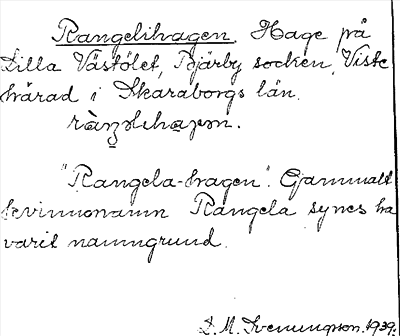 Rangelihagen. Hage på
Lilla Västölet, Bjärby socken, Viste
härad i Skaraborgs län.
"Rangela-hagen". Gammalt
kvinnonamn Rangela synes ha
varit namngrund.
S. M. Svenungsson. 1939.